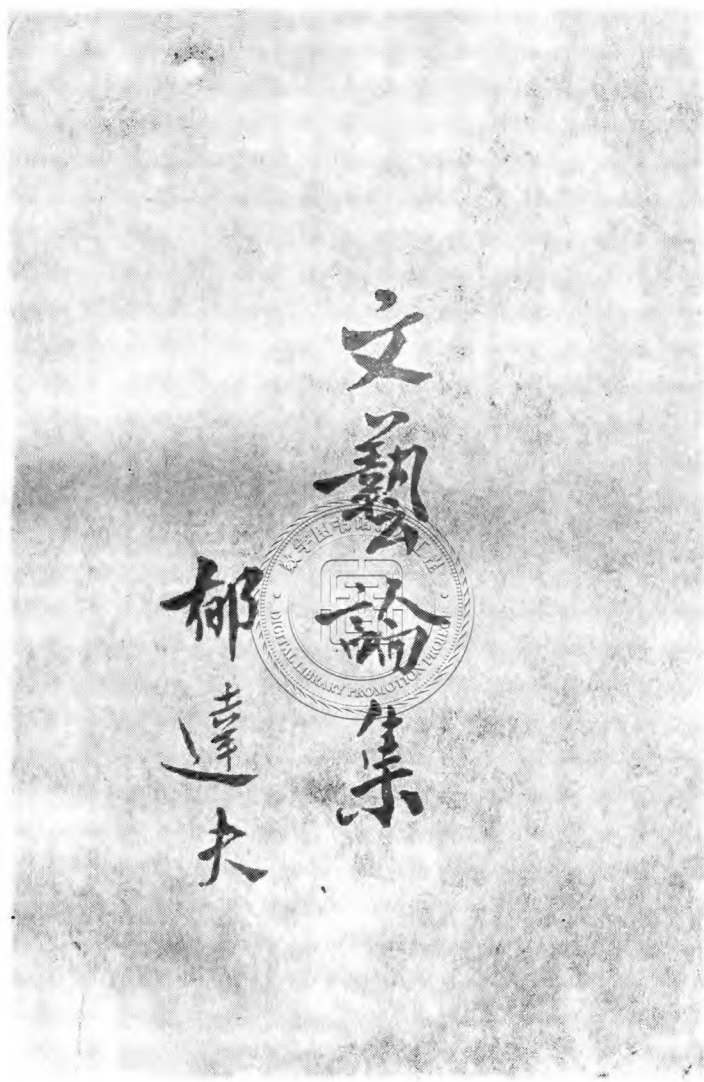 文藝論集
郁達夫
DIGITAL LIBRARY PROMOTION PROJECT